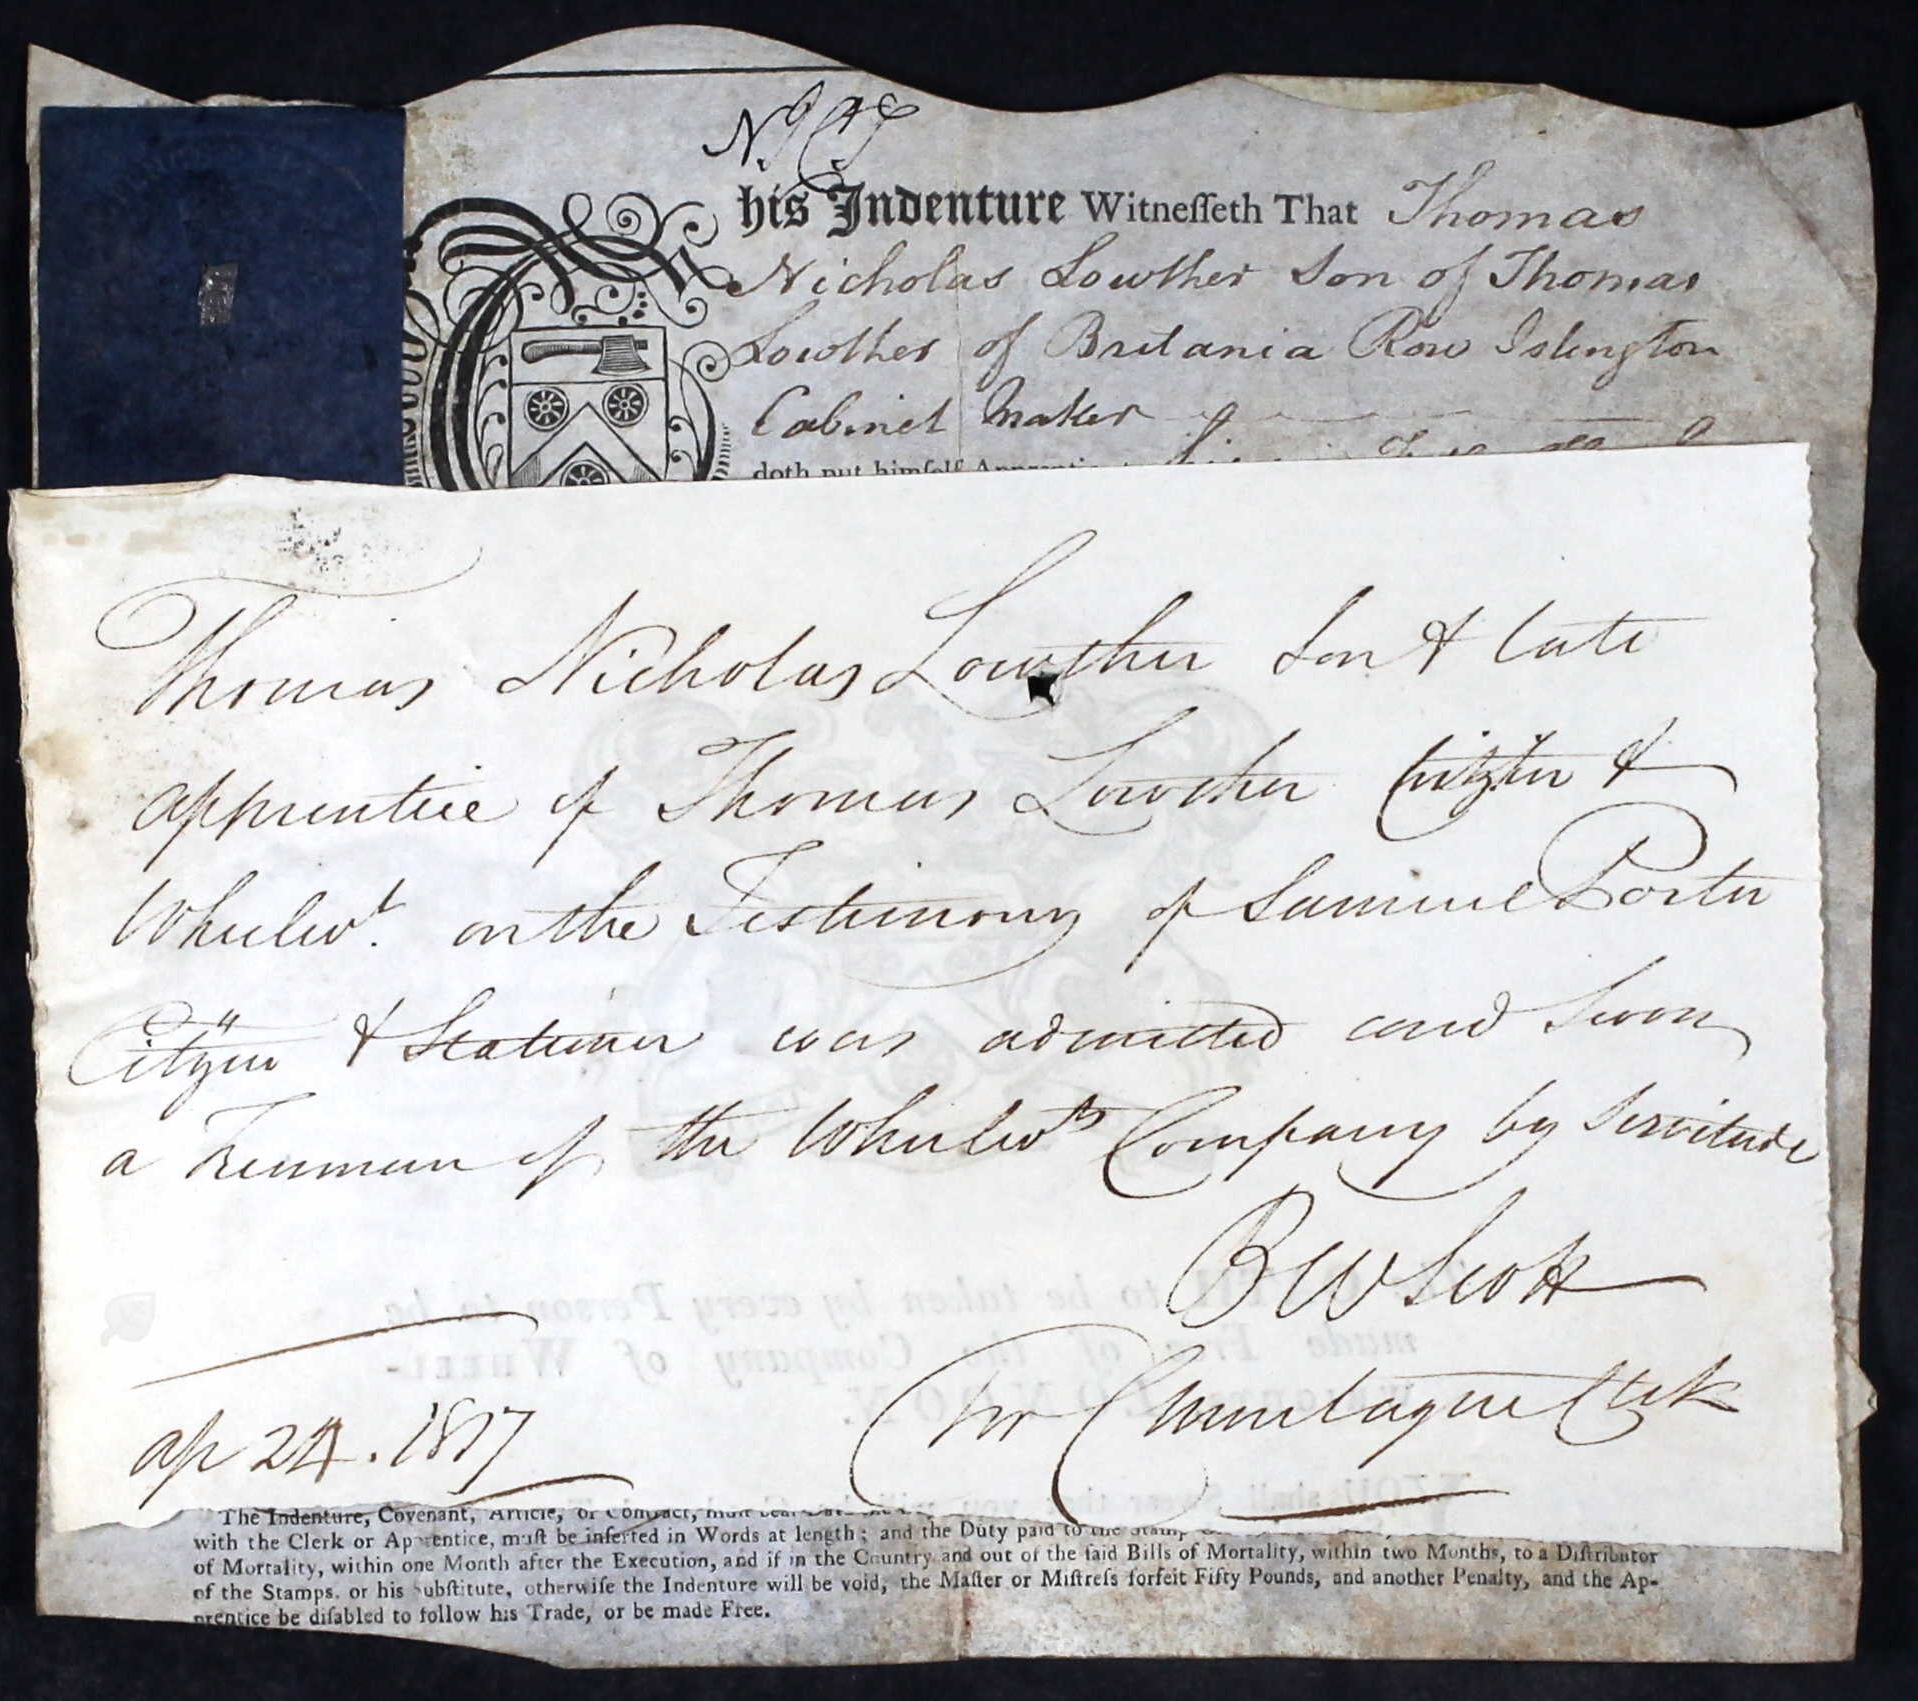 his Indenture Witnesseth That Thomas
Nicholas Lowther Son of Thomas
Lowther of Britania Row Islington
Cabinet Maker
doth put himself
Thomas Nicholas Lowther Son & late
apprentice of Thomas Lowther Citizen &
Wheelwt. on the Testimony of Samuel Porter
Citizen & Stationer was admitted and Sworn
a Freeman of the Wheelwts Company by Servitude
BW Scott
for C Montague Clerk
ap 24. 1817
The Indenture, Covenant, Article, or Contract, must bear Date the
with the Clerk or Apprentice, must be inserted in Words at length; and the Duty paid to the Stamp
of Mortality, within one Month after the Execution, and if in the Country and out of the said Bills of Mortality, within two Months, to a Distributor
of the Stamps. or his Substitute, otherwise the Indenture will be void, the Master or Mistress forfeit Fifty Pounds, and another Penalty, and the Ap-
prentice be disabled to follow his Trade, or be made Free.